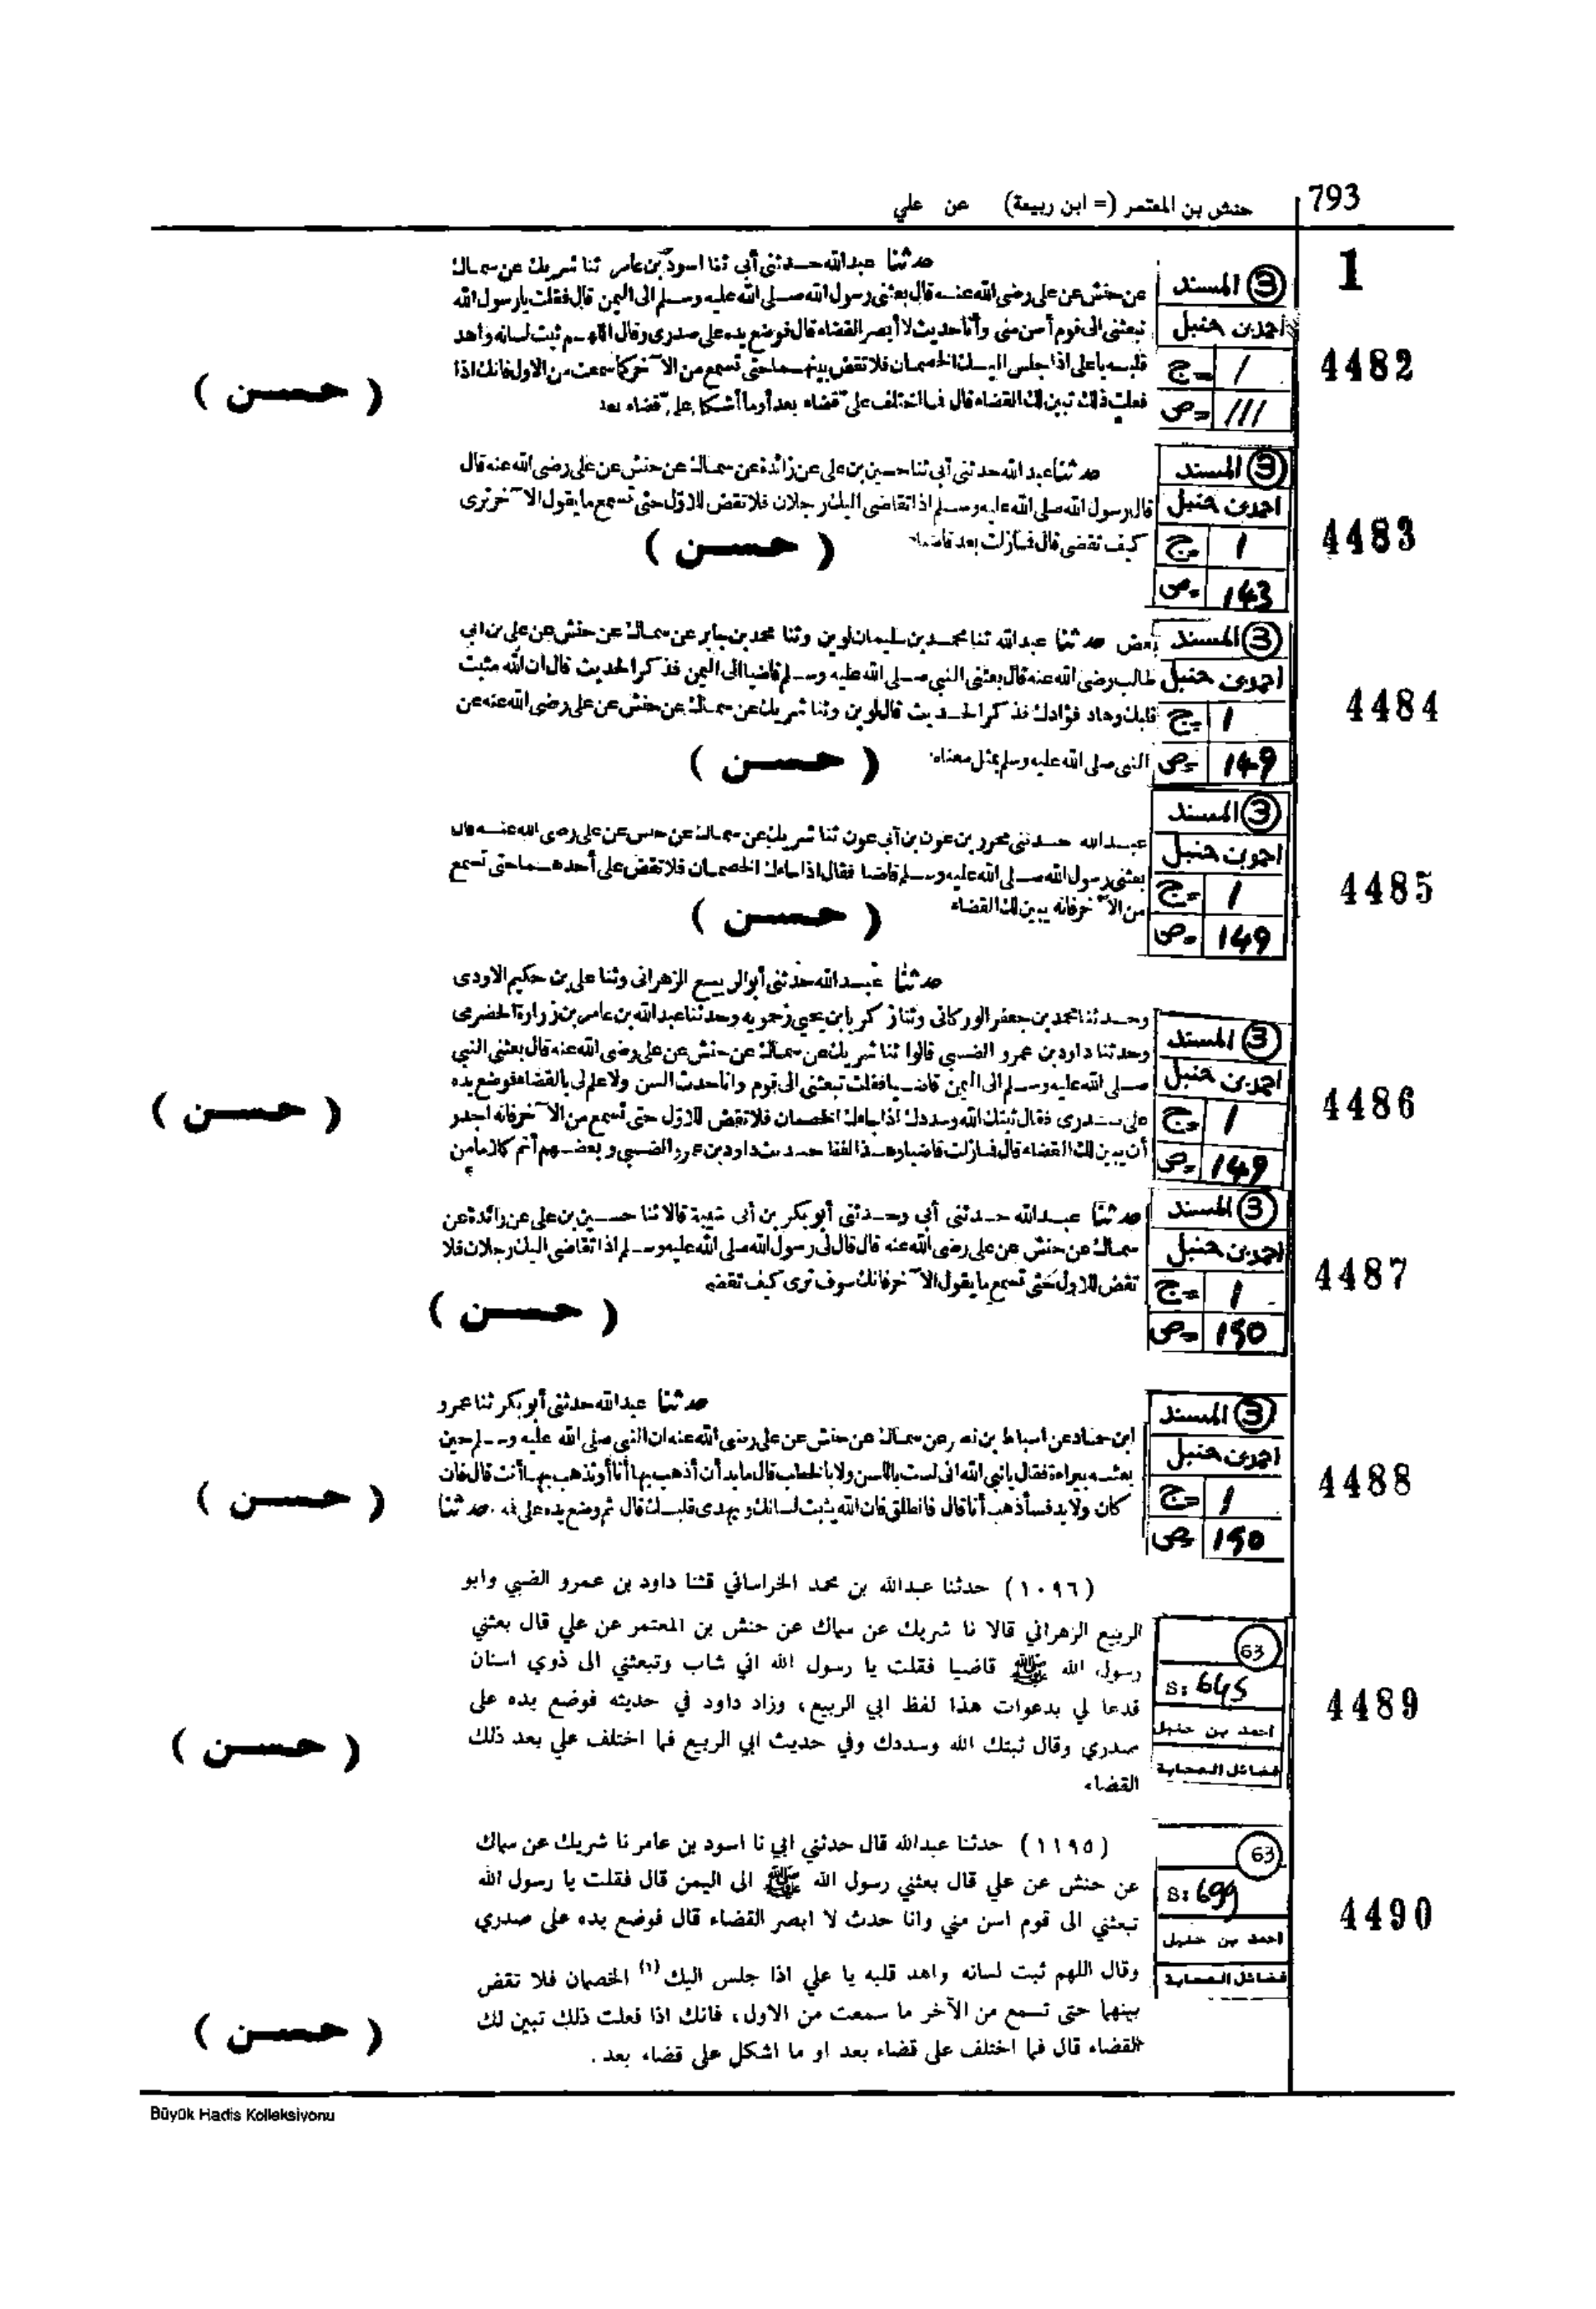 793
حنش بن المعتمر (= ابن ربيعة) عن علي
1
حدثنا عبدالله حدثنى أبي ثنا اسود بن عامر ثنا شريك عن سماك
عن حنش عن على رضى الله عنه قال بعثنى رسول الله صلى الله عليه وسلم الى اليمن قال فقلت يا رسول الله
تبعثنى الى قوم أسن منى وأنا حديث لا أبصر القضاء قال فوضع يده على صدرى وقال اللهم ثبت لسانه واهد
قلبه يا على اذا جلس اليك الخصمان فلا تقض بينهما حتى تسمع من الآخر كما سمعت من الاول فانك اذا
فعلت ذلك تبين لك القضاء قال فما اختلف على قضاء بعد أو ما أشكل على قضاء بعد
3 المسند
احمد بن حنبل
ج= 1
ص= 111
4482
( حسن )
حدثنا عبد الله حدثنى أبى ثنا حسين بن على عن زائدة عن سماك عن حنش عن على رضى الله عنه قال
قال رسول الله صلى الله عليه وسلم اذا تقاضى اليك رجلان فلا تقض للاول حتى تسمع ما يقول الآخر ترى
كيف تقضى قال فما زلت بعد قاضيا
3 المسند
احمد بن حنبل
ج= 1
ص= 143
4483
( حسن )
بعض حدثنا عبد الله ثنا محمد بن سليمان لوين وثنا محمد بن جابر عن سماك عن حنش عن على بن ابى
طالب رضى الله عنه قال بعثنى النبى صلى الله عليه وسلم قاضيا الى اليمن فذكر الحديث قال ان الله مثبت
قلبك وهاد فؤادك فذكر الحديث قال لوين وثنا شريك عن سماك عن حنش عن على رضى الله عنه عن
النبى صلى الله عليه وسلم بمثل معناه
3 المسند
احمد بن حنبل
ج= 1
ص= 149
4484
( حسن )
عبد الله حدثنى محرز بن عون بن أبى عون ثنا شريك عن سماك عن حنش عن على رضى الله عنه قال
بعثنى رسول الله صلى الله عليه وسلم قاضيا فقال اذا جاءك الخصمان فلا تقض على أحدهما حتى تسمع
من الآخر فانه يبين لك القضاء
3 المسند
احمد بن حنبل
ج= 1
ص= 149
4485
( حسن )
حدثنا عبد الله حدثنى أبو الربيع الزهرانى وثنا على بن حكيم الاودى
وحدثنا محمد بن جعفر الوركانى وثنا زكريا بن يحيى زحمويه وحدثنا عبد الله بن عامر بن زرارة الحضرمى
وحدثنا داود بن عمرو الضبى قالوا ثنا شريك عن سماك عن حنش عن على رضى الله عنه قال بعثنى النبى
صلى الله عليه وسلم الى اليمن قاضيا فقلت تبعثنى الى قوم وانا حدث السن ولا علم لى بالقضاء فوضع يده
على صدرى فقال ثبتك الله وسددك اذا جاءك الخصمان فلا تقض للاول حتى تسمع من الآخر فانه اجدر
أن يبين لك القضاء قال فما زلت قاضيا وهذا لفظ حديث داود بن عمرو الضبى وبعضهم أتم كلاما من
3 المسند
احمد بن حنبل
ج= 1
ص= 149
4486
( حسن )
حدثنا عبد الله حدثنى أبى وحدثنى أبو بكر بن أبى شيبة قالا ثنا حسين بن على عن زائدة عن
سماك عن حنش عن على رضى الله عنه قال قال لى رسول الله صلى الله عليه وسلم اذا تقاضى اليك رجلان فلا
تقض للاول حتى تسمع ما يقول الآخر فانك سوف ترى كيف تقضى
3 المسند
احمد بن حنبل
ج= 1
ص= 150
4487
( حسن )
حدثنا عبد الله حدثنى أبو بكر ثنا عمرو
ابن حماد عن اسباط بن نصر عن سماك عن حنش عن على رضى الله عنه ان النبى صلى الله عليه وسلم حين
بعثه ببراءة فقال يا نبى الله انى لست باللسن ولا بالخطيب قال ما بد أن أذهب بها أنا أو تذهب بها أنت قال فان
كان ولا بد فسأذهب أنا قال فانطلق فان الله يثبت لسانك ويهدى قلبك قال ثم وضع يده على فمه . حدثنا
3 المسند
احمد بن حنبل
ج= 1
ص= 150
4488
( حسن )
(١٠٩٦) حدثنا عبدالله بن محمد الخراساني قثنا داود بن عمرو الضبي وابو
الربيع الزهراني قالا نا شريك عن سماك عن حنش بن المعتمر عن علي قال بعثني
رسول الله ﷺ قاضيا فقلت يا رسول الله اني شاب وتبعثني الى ذوي اسنان
قدعا لي بدعوات هذا لفظ ابي الربيع، وزاد داود في حديثه فوضع يده على
صدري وقال ثبتك الله وسددك وفي حديث ابي الربيع فما اختلف علي بعد ذلك
القضاء
63
S: 645
احمد بن حنبل
فضائل الصحابة
4489
( حسن )
(١١٩٥) حدثنا عبدالله قال حدثني ابي نا اسود بن عامر نا شريك عن سماك
عن حنش عن علي قال بعثني رسول الله ﷺ الى اليمن قال فقلت يا رسول الله
تبعثني الى قوم اسن مني وانا حدث لا ابصر القضاء قال فوضع يده على صدري
وقال اللهم ثبت لسانه واهد قلبه يا علي اذا جلس اليك (١) الخصمان فلا تقض
بينهما حتى تسمع من الآخر ما سمعت من الاول، فانك اذا فعلت ذلك تبين لك
القضاء قال فما اختلف على قضاء بعد او ما اشكل على قضاء بعد .
63
S: 699
احمد بن حنبل
فضائل الصحابة
4490
( حسن )
Büyük Hadis Kolleksiyonu